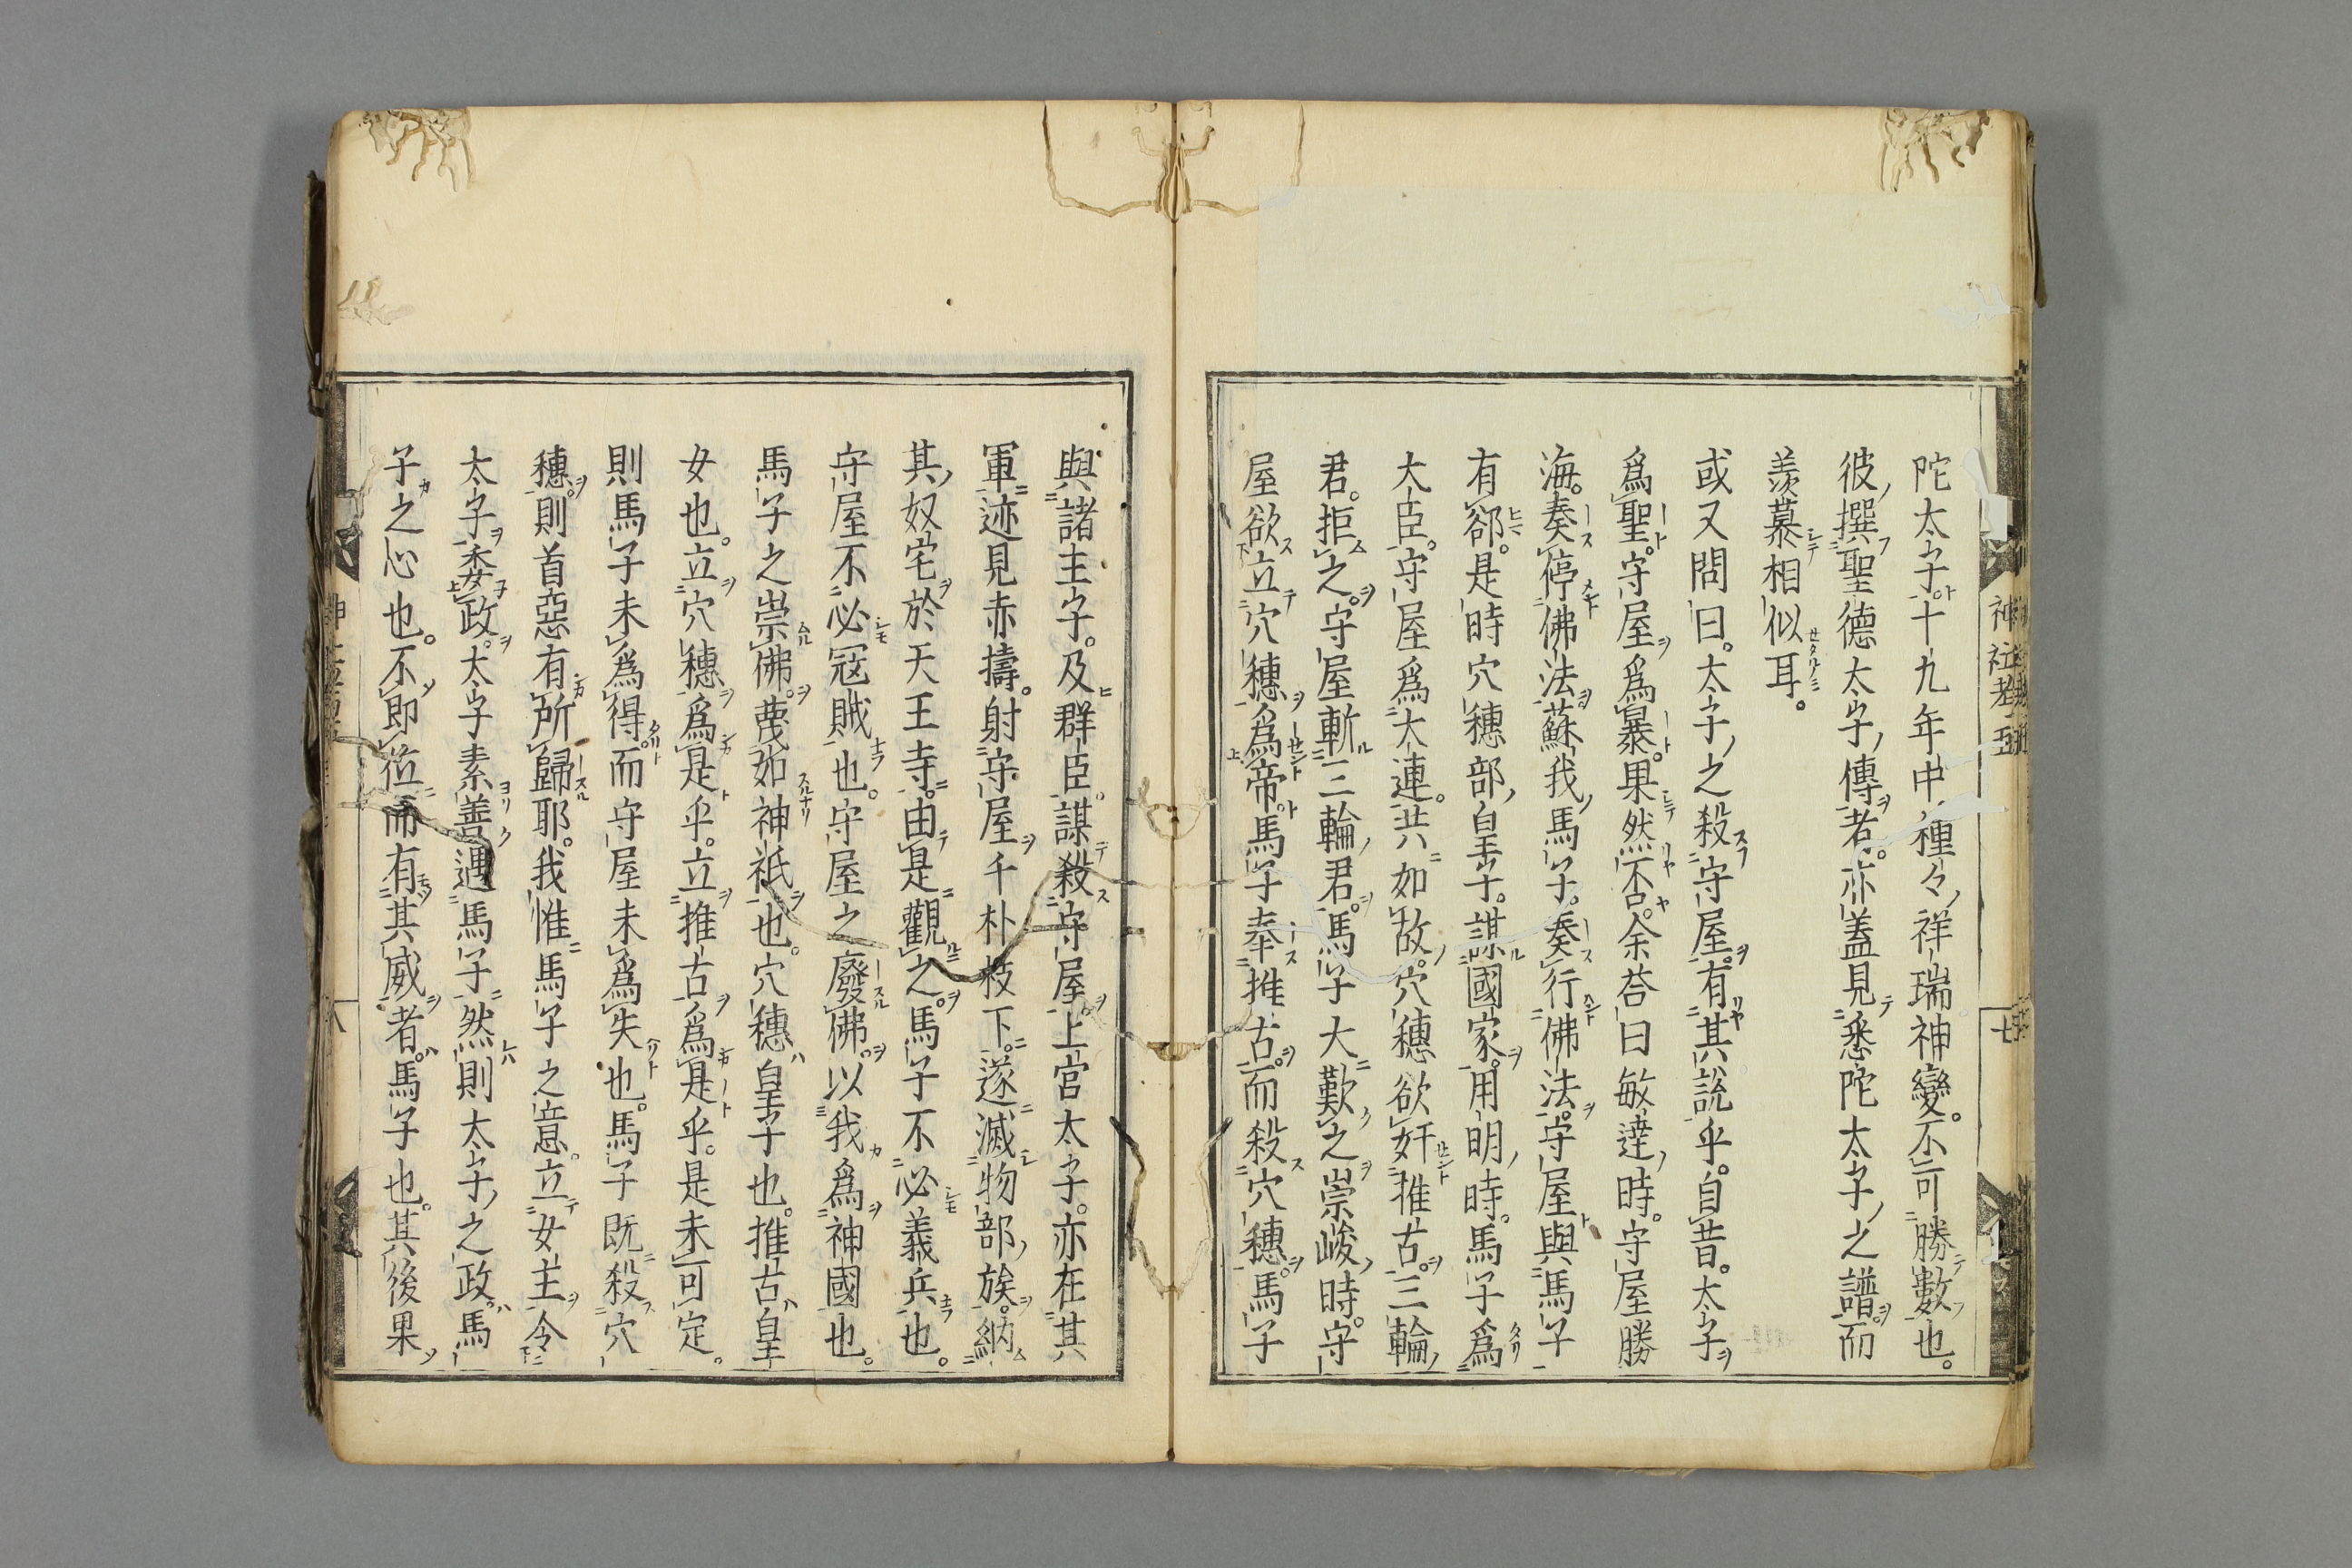 陀太子。十九年中種々祥瑞神變。不可勝數也。
彼撰聖德太子傳者。亦蓋見悉陀太子之譜。而
羨慕相似耳。
或又問曰。太子之殺守屋。有其說乎。自昔。太子
爲聖。守屋爲暴。果然否。余荅曰敏達時。守屋勝
海。奏停佛法。蘇我馬子。奏行佛法。守屋與馬子
有郤。是時穴穗部皇子。謀國家。用明時。馬子爲
大臣。守屋爲大連。共如故。穴穗欲奸推古。三輪
君。拒之。守屋斬三輪君。馬子大歎之。崇峻時。守
屋欲立穴穗爲帝。馬子奉推古。而殺穴穗。馬子
與諸王子。及群臣。謀殺守屋。上宮太子。亦在其
軍。迹見赤擣。射守屋千朴枝下。遂滅物部族。納
其奴宅於天王寺。由是觀之。馬子不必義兵也。
守屋不必冦賊也。守屋之廢佛。以我爲神國也。
馬子之崇佛。蔑如神祇也。穴穗皇子也。推古皇
女也。立穴穗爲是乎。立推古爲是乎。是未可定。
則馬子未爲得。而守屋未爲失也。馬子既殺穴
穗。則首惡有所歸耶。我惟馬子之意。立女主。令
太子委政。太子素善遇馬子。然則太子之政。馬
子之心也。不即位而有其威者。馬子也。其後果
神社考五
七
八